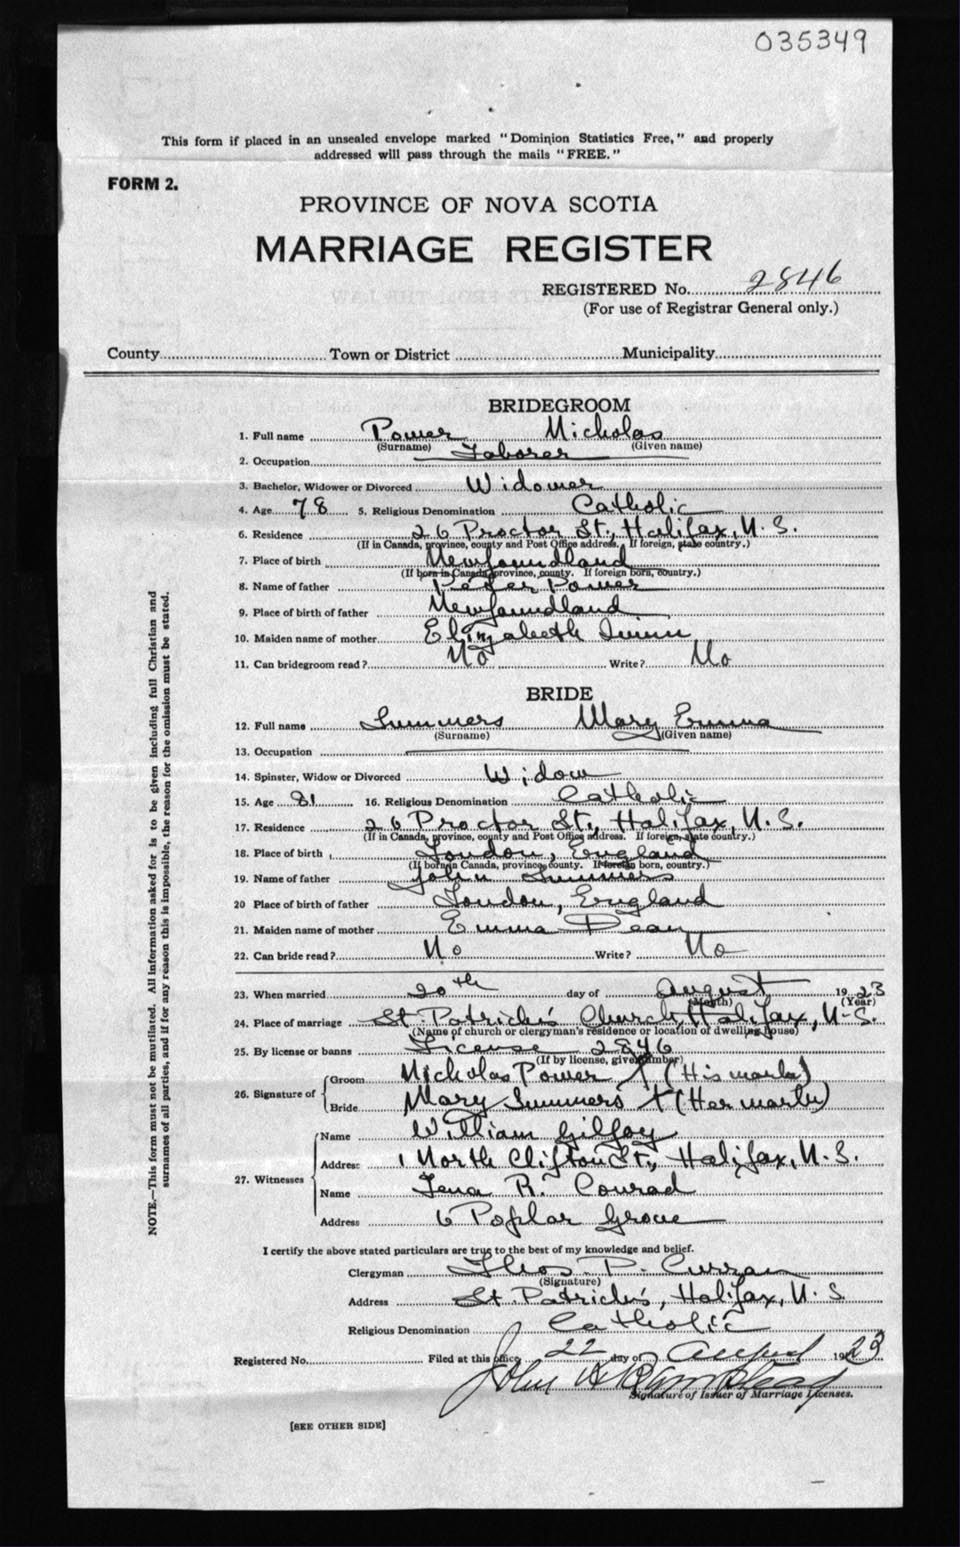 035349
This form if placed in an unsealed envelope marked "Dominion Statistics Free," and properly
addressed will pass through the mails "FREE."
FORM 2.
PROVINCE OF NOVA SCOTIA
MARRIAGE REGISTER
REGISTERED No. 2846
(For use of Registrar General only.)
County Town or District Municipality
BRIDEGROOM
1. Full name Power Nicholas
(Surname) (Given name)
2. Occupation Laborer
3. Bachelor, Widower or Divorced Widower
4. Age 78 5. Religious Denomination Catholic
6. Residence 26 Proctor St., Halifax, N.S.
(If in Canada, province, county and Post Office address. If foreign, state country.)
7. Place of birth Newfoundland
(If born in Canada, province, county. If foreign born, country.)
8. Name of father Peter Power
9. Place of birth of father Newfoundland
10. Maiden name of mother Elizabeth Quinn
11. Can bridegroom read? No Write? No
BRIDE
12. Full name Summers Mary Emma
(Surname) (Given name)
13. Occupation
14. Spinster, Widow or Divorced Widow
15. Age 81 16. Religious Denomination Catholic
17. Residence 26 Proctor St., Halifax, N.S.
(If in Canada, province, county and Post Office address. If foreign, state country.)
18. Place of birth London, England
(If born in Canada, province, county. If foreign born, country.)
19. Name of father John Summers
20 Place of birth of father London, England
21. Maiden name of mother Emma Dean
22. Can bride read? No Write? No
23. When married 20th day of August 1923
(Month) (Year)
24. Place of marriage St Patrick's Church, Halifax, N.S.
(Name of church or clergyman's residence or location of dwelling house)
25. By license or banns License 2846
(If by license, give number)
26. Signature of Groom Nicholas Power X (His mark)
Bride Mary Summers X (Her mark)
27. Witnesses Name William Gilfoy
Address 1 North Clifton St., Halifax, N.S.
Name Lena R. Conrad
Address 6 Poplar Grove
I certify the above stated particulars are true to the best of my knowledge and belief.
Clergyman Theos P. Curran
(Signature)
Address St Patrick's, Halifax, N.S
Religious Denomination Catholic
Registered No. Filed at this office 22 day of August 1923
John
Signature of Issuer of Marriage Licenses.
[SEE OTHER SIDE]
NOTE.—This form must not be mutilated. All information asked for is to be given including full Christian and
surnames of all parties, and if for any reason this is impossible, the reason for the omission must be stated.